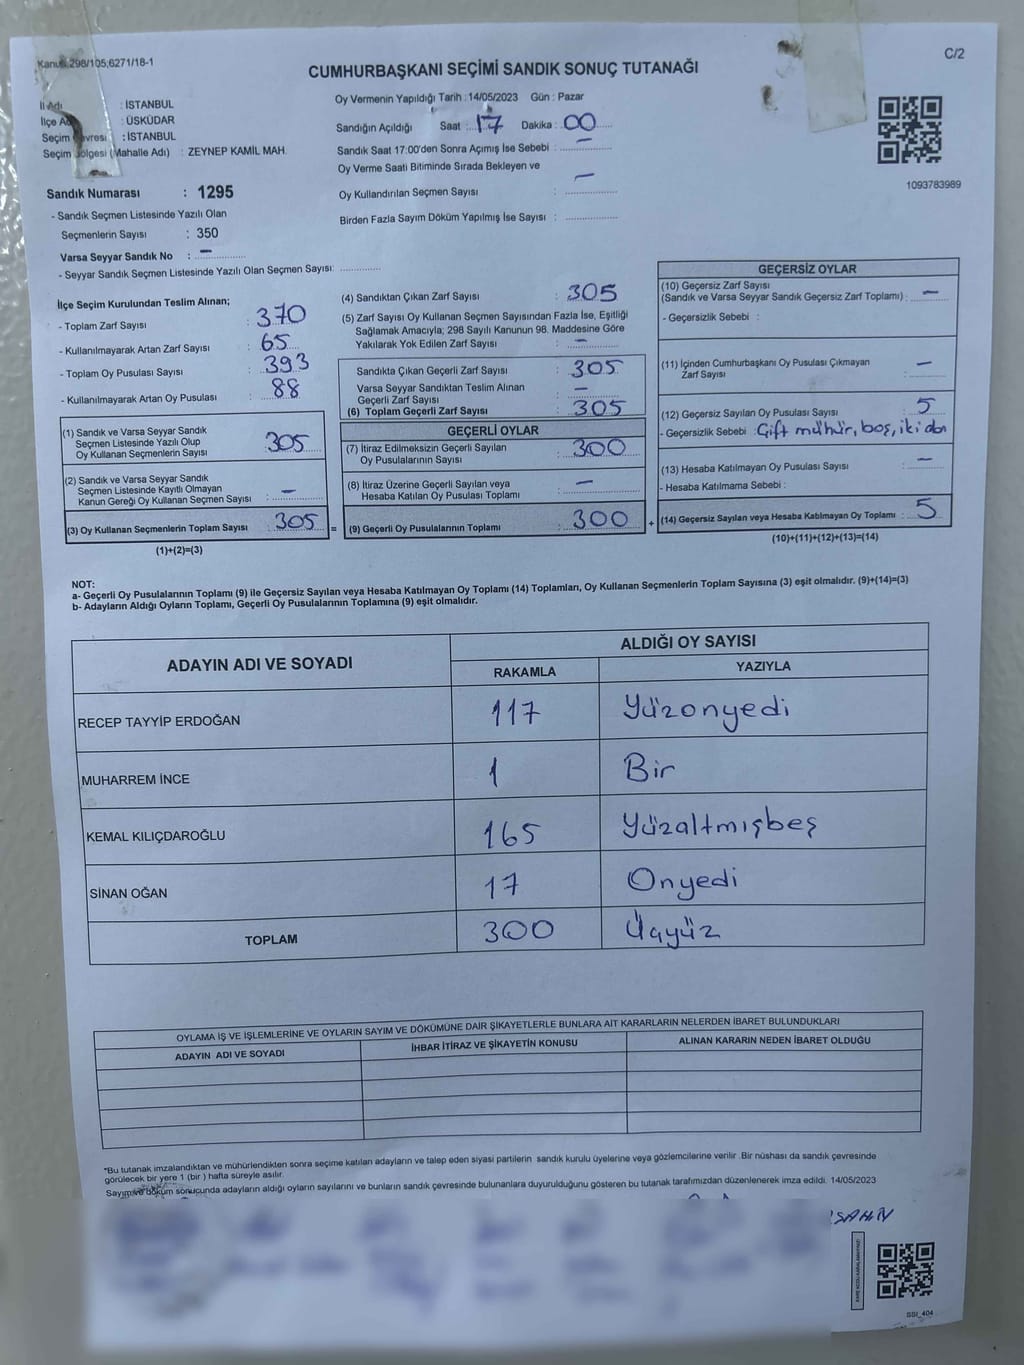 Kanun:298/105;6271/18-1
C/2
CUMHURBAŞKANI SEÇİMİ SANDIK SONUÇ TUTANAĞI
İl Adı : İSTANBUL
İlçe Adı : ÜSKÜDAR
Seçim Çevresi : İSTANBUL
Seçim Bölgesi (Mahalle Adı) : ZEYNEP KAMİL MAH.
Sandık Numarası : 1295
- Sandık Seçmen Listesinde Yazılı Olan
Seçmenlerin Sayısı : 350
Varsa Seyyar Sandık No : –
- Seyyar Sandık Seçmen Listesinde Yazılı Olan Seçmen Sayısı:
Oy Vermenin Yapıldığı Tarih : 14/05/2023 Gün : Pazar
Sandığın Açıldığı Saat : 17 Dakika : 00
Sandık Saat 17:00'den Sonra Açımış İse Sebebi : –
Oy Verme Saati Bitiminde Sırada Bekleyen ve
Oy Kullandırılan Seçmen Sayısı : –
Birden Fazla Sayım Döküm Yapılmış İse Sayısı :
1093783989
İlçe Seçim Kurulundan Teslim Alınan;
- Toplam Zarf Sayısı : 370
- Kullanılmayarak Artan Zarf Sayısı : 65
- Toplam Oy Pusulası Sayısı : 393
- Kullanılmayarak Artan Oy Pusulası : 88
(1) Sandık ve Varsa Seyyar Sandık
Seçmen Listesinde Yazılı Olup
Oy Kullanan Seçmenlerin Sayısı : 305
(2) Sandık ve Varsa Seyyar Sandık
Seçmen Listesinde Kayıtlı Olmayan
Kanun Gereği Oy Kullanan Seçmen Sayısı : –
(3) Oy Kullanan Seçmenlerin Toplam Sayısı : 305 =
(1)+(2)=(3)
(4) Sandıktan Çıkan Zarf Sayısı : 305
(5) Zarf Sayısı Oy Kullanan Seçmen Sayısından Fazla İse, Eşitliği
Sağlamak Amacıyla; 298 Sayılı Kanunun 98. Maddesine Göre
Yakılarak Yok Edilen Zarf Sayısı : –
Sandıkta Çıkan Geçerli Zarf Sayısı : 305
Varsa Seyyar Sandıktan Teslim Alınan
Geçerli Zarf Sayısı : –
(6) Toplam Geçerli Zarf Sayısı : 305
GEÇERLİ OYLAR
(7) İtiraz Edilmeksizin Geçerli Sayılan
Oy Pusulalarının Sayısı : 300
(8) İtiraz Üzerine Geçerli Sayılan veya
Hesaba Katılan Oy Pusulası Toplamı : –
(9) Geçerli Oy Pusulalarının Toplamı : 300 +
GEÇERSİZ OYLAR
(10) Geçersiz Zarf Sayısı
(Sandık ve Varsa Seyyar Sandık Geçersiz Zarf Toplamı) : –
- Geçersizlik Sebebi :
(11) İçinden Cumhurbaşkanı Oy Pusulası Çıkmayan
Zarf Sayısı : –
(12) Geçersiz Sayılan Oy Pusulası Sayısı : 5
- Geçersizlik Sebebi : Çift mühür, boş, iki
(13) Hesaba Katılmayan Oy Pusulası Sayısı : –
- Hesaba Katılmama Sebebi :
(14) Geçersiz Sayılan veya Hesaba Katılmayan Oy Toplamı : 5
(10)+(11)+(12)+(13)=(14)
NOT:
a- Geçerli Oy Pusulalarının Toplamı (9) ile Geçersiz Sayılan veya Hesaba Katılmayan Oy Toplamı (14) Toplamları, Oy Kullanan Seçmenlerin Toplam Sayısına (3) eşit olmalıdır. (9)+(14)=(3)
b- Adayların Aldığı Oyların Toplamı, Geçerli Oy Pusulalarının Toplamına (9) eşit olmalıdır.
ADAYIN ADI VE SOYADI
ALDIĞI OY SAYISI
RAKAMLA YAZIYLA
RECEP TAYYİP ERDOĞAN 117 Yüzonyedi
MUHARREM İNCE 1 Bir
KEMAL KILIÇDAROĞLU 165 Yüzaltmışbeş
SİNAN OĞAN 17 Onyedi
TOPLAM 300 Üçyüz
OYLAMA İŞ VE İŞLEMLERİNE VE OYLARIN SAYIM VE DÖKÜMÜNE DAİR ŞİKAYETLERLE BUNLARA AİT KARARLARIN NELERDEN İBARET BULUNDUKLARI
ADAYIN ADI VE SOYADI İHBAR İTİRAZ VE ŞİKAYETİN KONUSU ALINAN KARARIN NEDEN İBARET OLDUĞU
*Bu tutanak imzalandıktan ve mühürlendikten sonra seçime katılan adayların ve talep eden siyasi partilerin sandık kurulu üyelerine veya gözlemcilerine verilir .Bir nüshası da sandık çevresinde
görülecek bir yere 1 (bir ) hafta süreyle asılır.
Sayım ve döküm sonucunda adayların aldığı oyların sayılarını ve bunların sandık çevresinde bulunanlara duyurulduğunu gösteren bu tutanak tarafımızdan düzenlenerek imza edildi. 14/05/2023
ŞAHİN
SSI_404